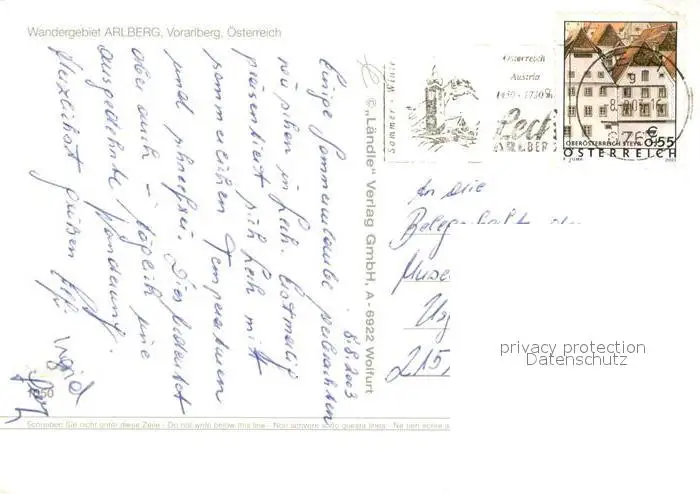 Wandergebiet ARLBERG, Vorarlberg, Österreich
8.8.2003
Einige Sommerlaube verbrachten
wir schon in Lech. Erstmalig
präsentiert sich Lech mit
sommerlichen Temperaturen
und schneefrei. Dies bedeutet
aber auch - täglich eine
ausgedehnte Wanderung.
Herzlichst grüßen
Ingrid
© „Ländle" Verlag GmbH, A - 6922 Wolfurt
Sommer - Winter
Österreich
Austria
1450 - 1730 m
Lech
ARLBERG
OBERÖSTERREICH STEYR
€ 0.55
ÖSTERREICH
An die
Belegschaft
215
privacy protection
Datenschutz
Schreiben Sie nicht unter diese Zeile - Do not write below this line - Non scrivere sotto questa linea - Ne rien écrire